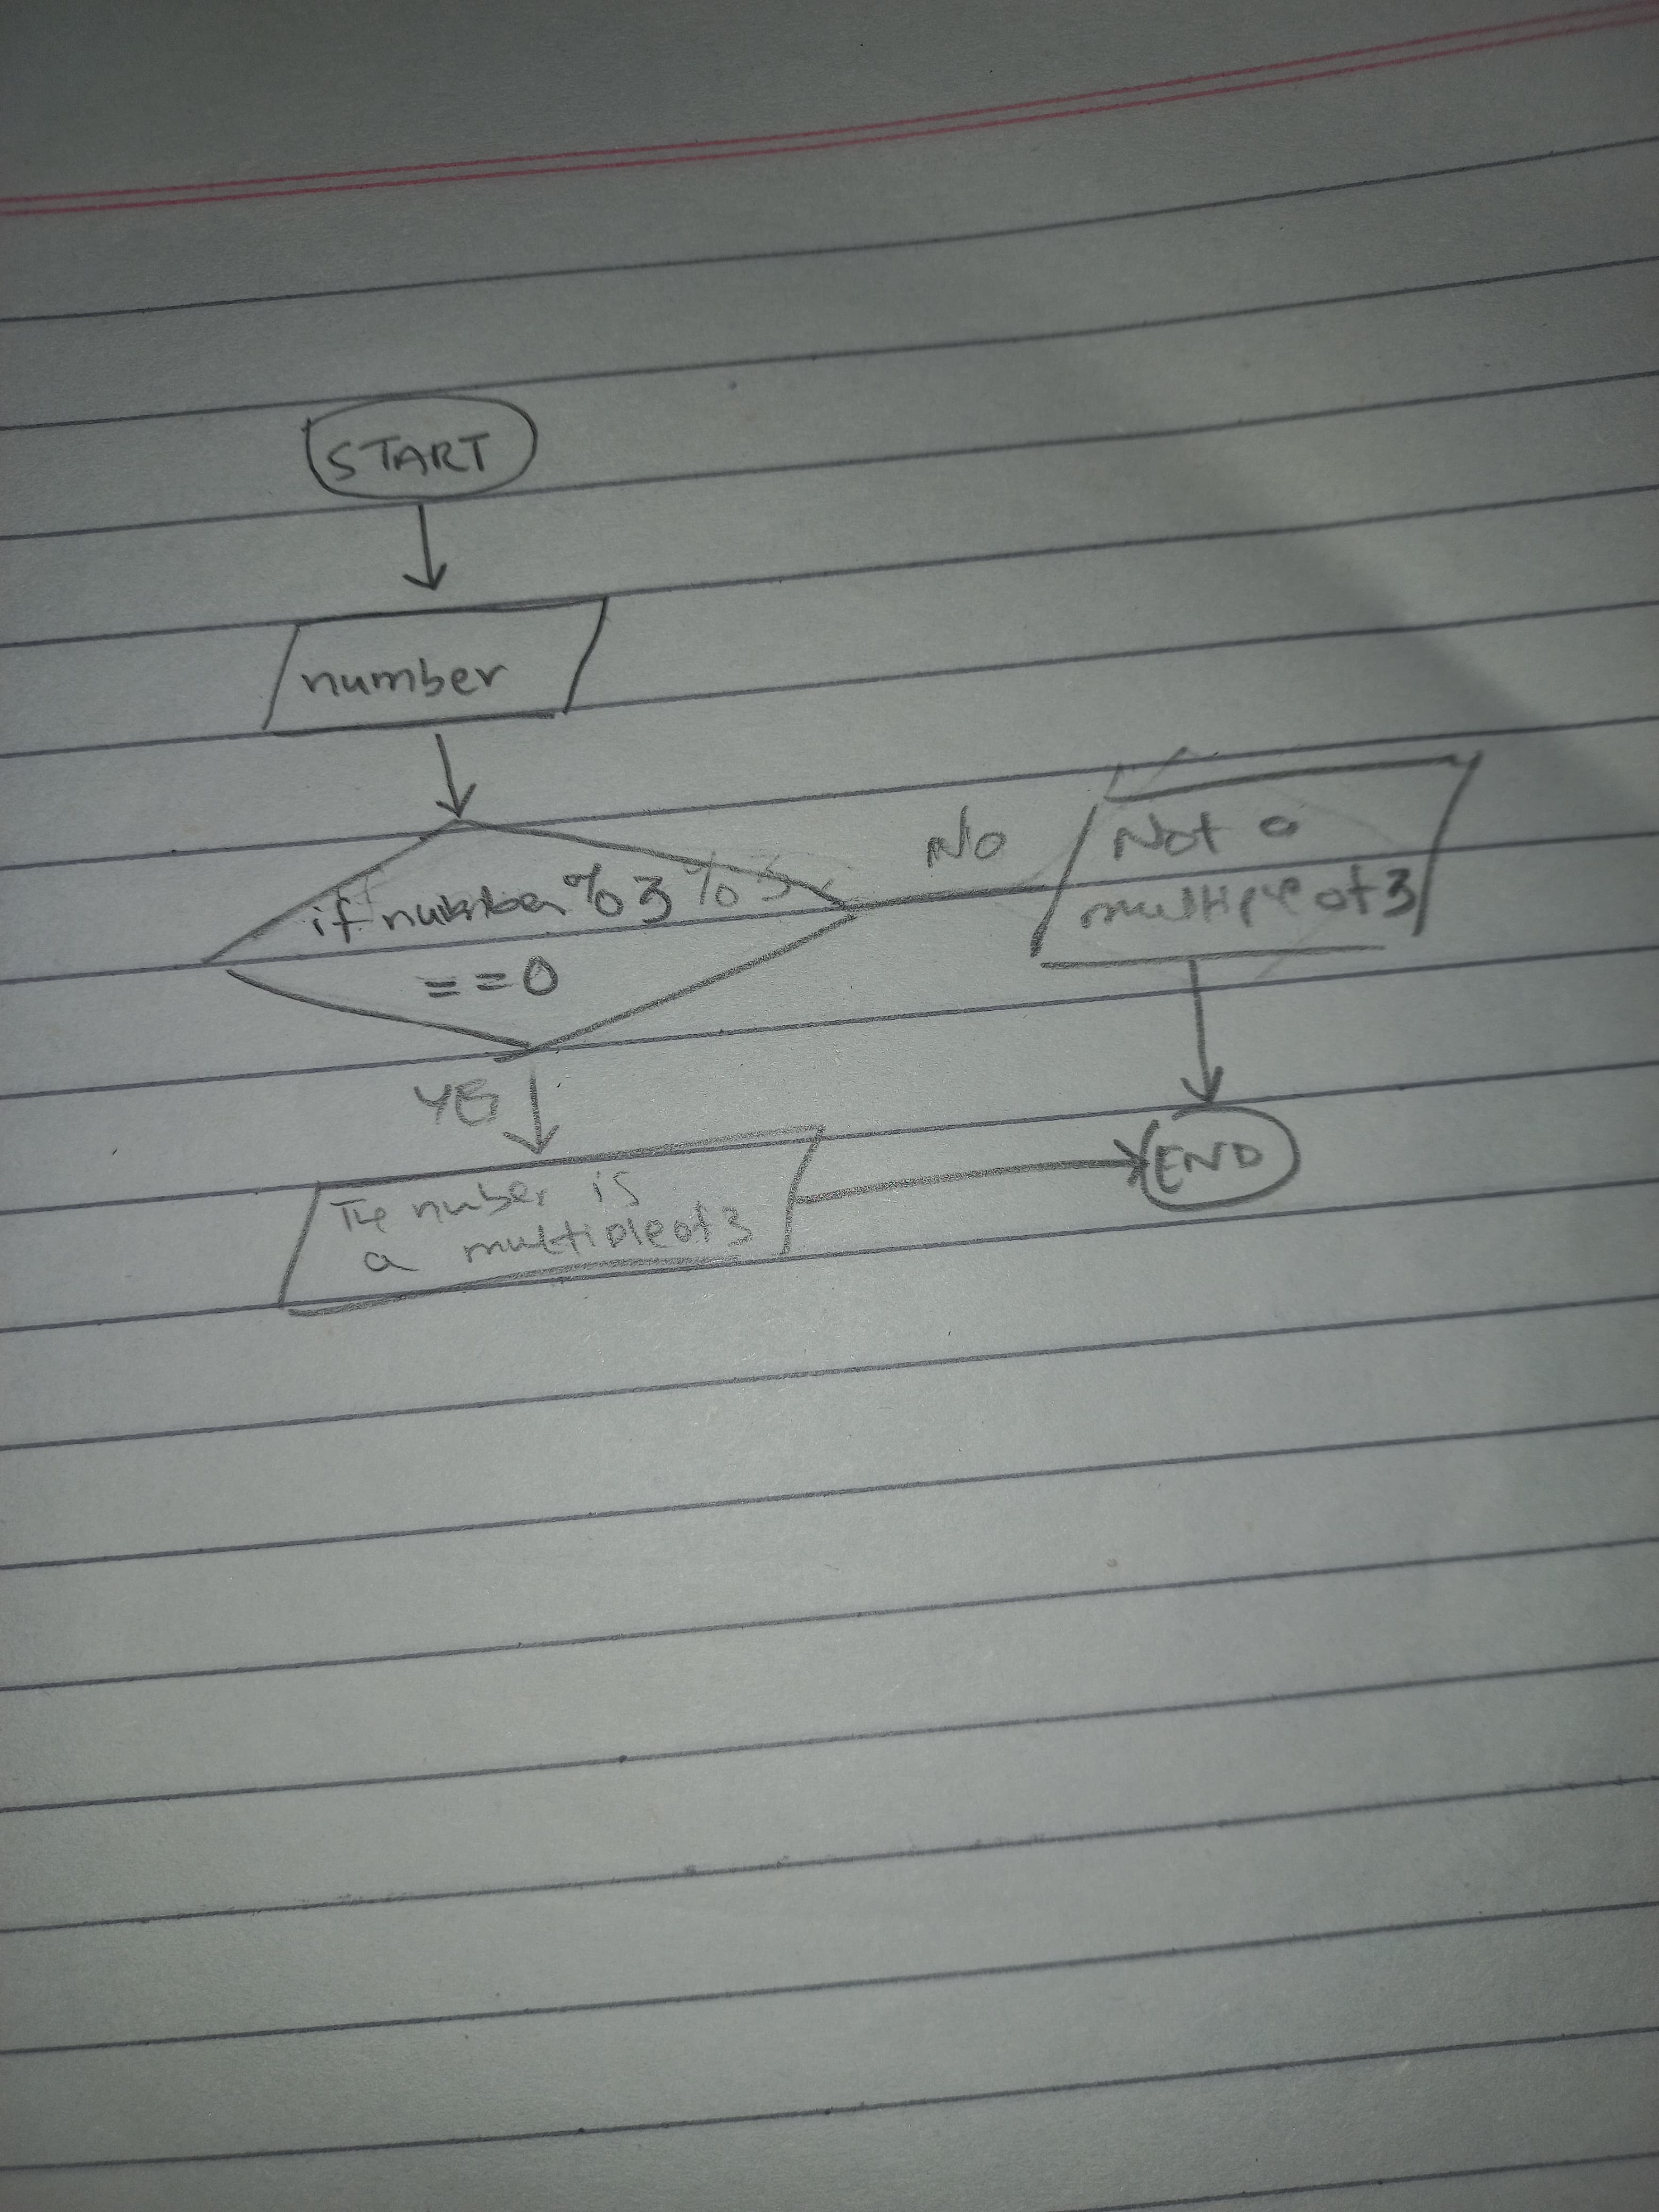 START
number
if number % 3 % 3
= = 0
No
Not a
multiple of 3
YES
The number is
a multiple of 3
END